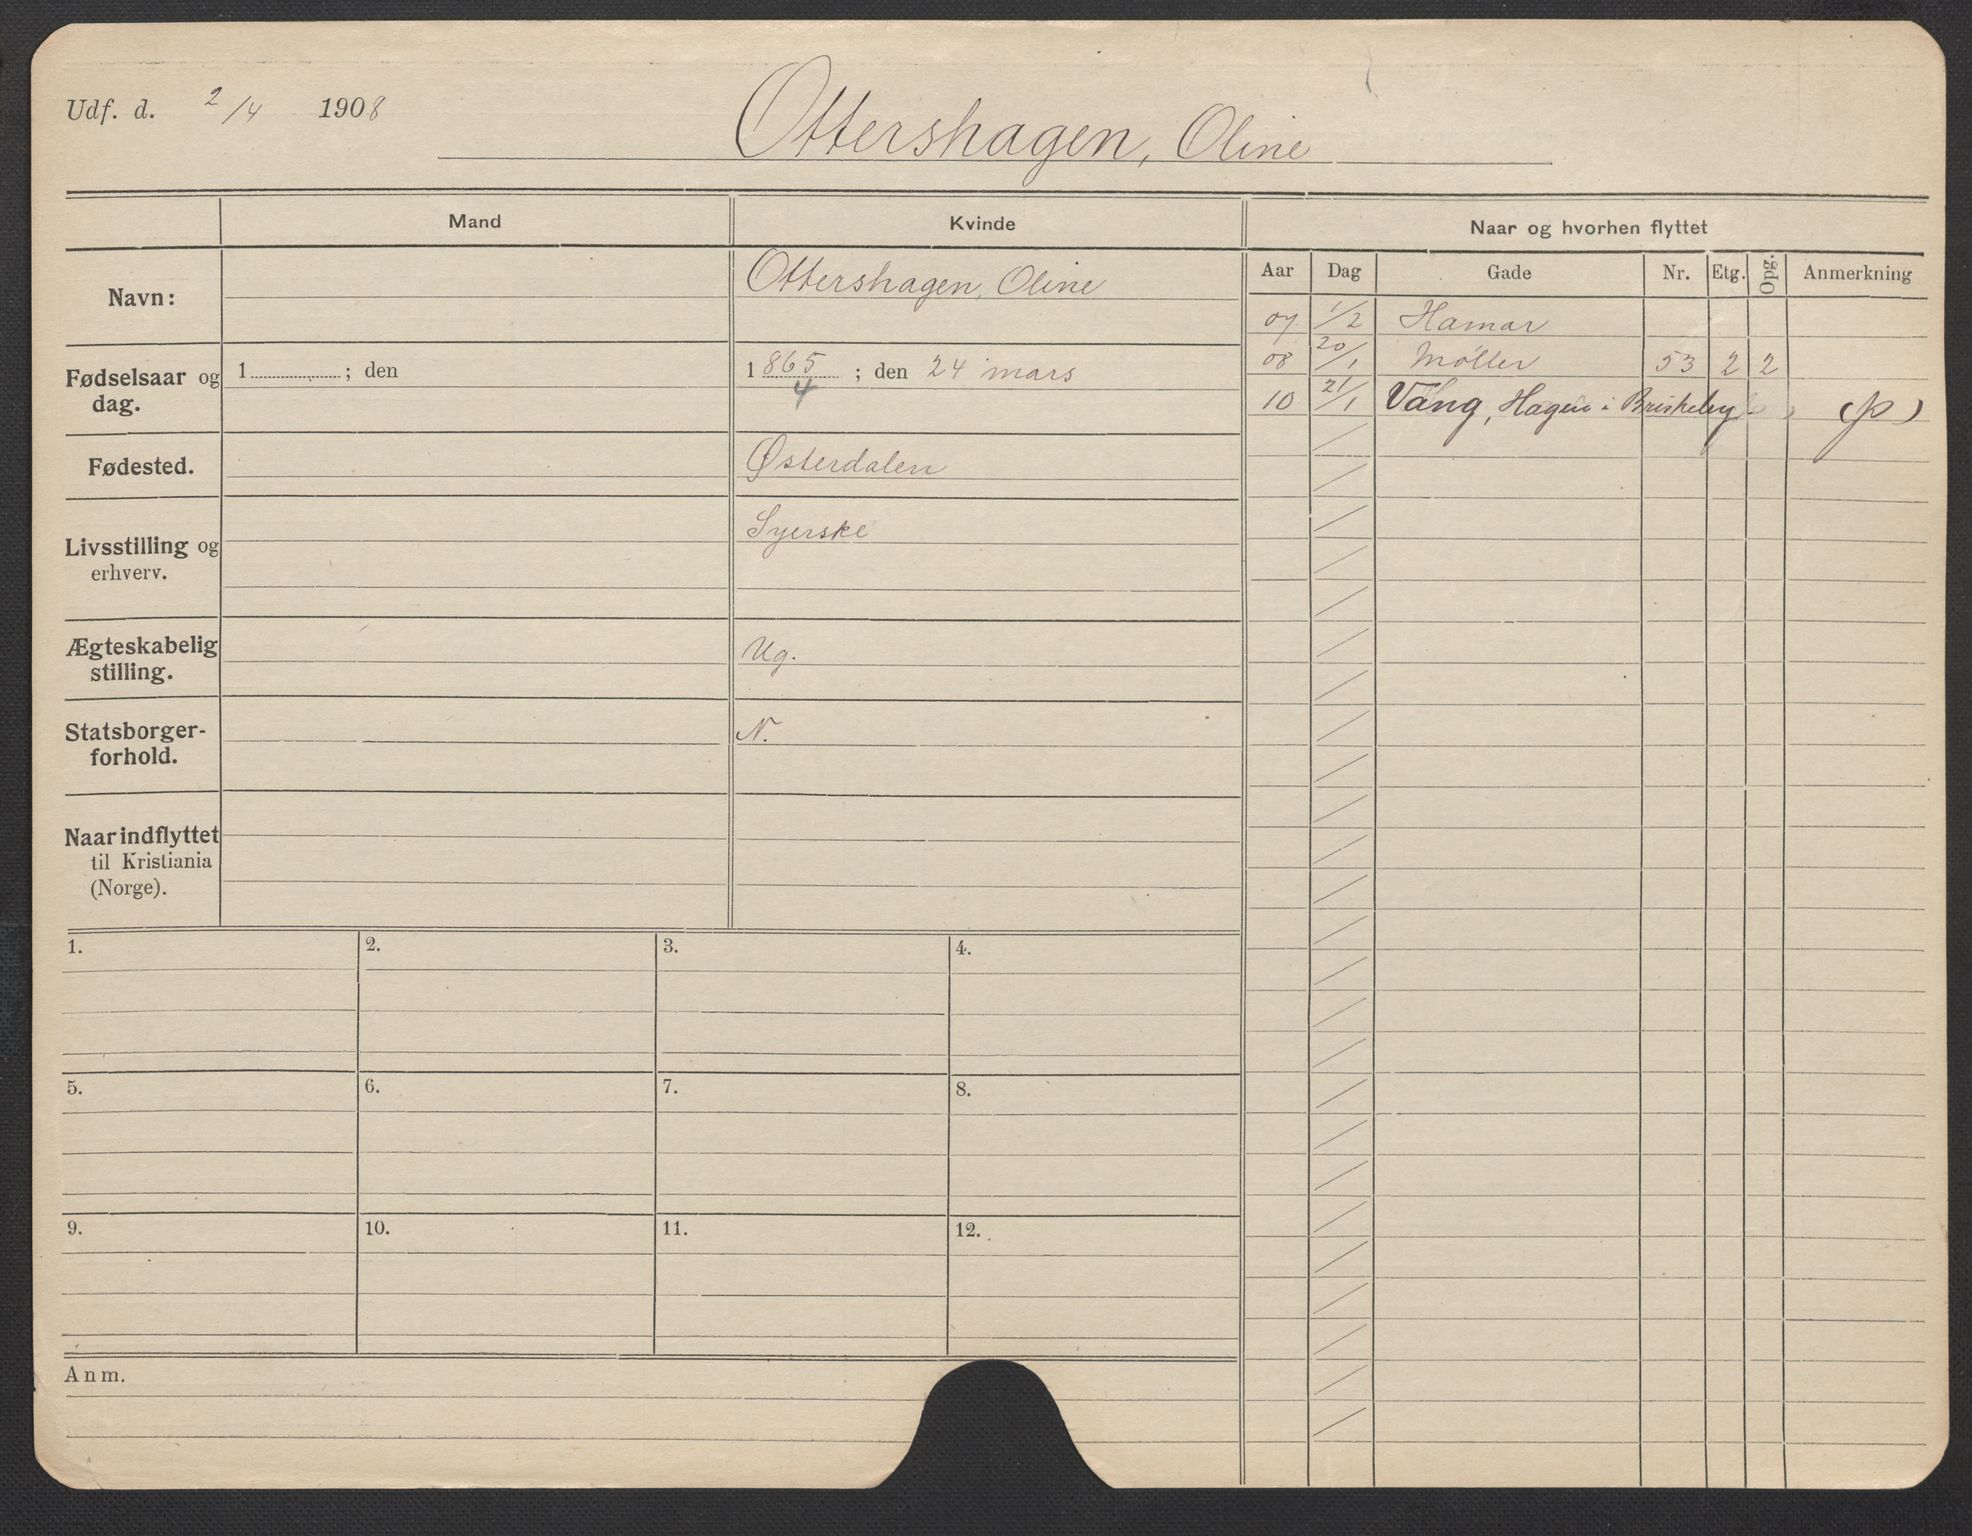 Udf. d. 2/4 1908
Ottershagen, Oline
Mand Kvinde Naar og hvorhen flyttet
Aar Dag Gade Nr. Etg. Opg. Anmerkning
Navn: Ottershagen, Oline
07 1/2 Hamar
08 20/1 Møller 53 2 2
10 21/1 Vang, Hagen i Briskeby (P)
Fødselsaar og dag. 1 ; den 1865 ; den 24 mars
4
Fødested. Østerdalen
Livsstilling og erhverv. Syerske
Ægteskabelig stilling. Ug.
Statsborgerforhold. N.
Naar indflyttet
til Kristiania
(Norge).
1. 2. 3. 4.
5. 6. 7. 8.
9. 10. 11. 12.
Anm.